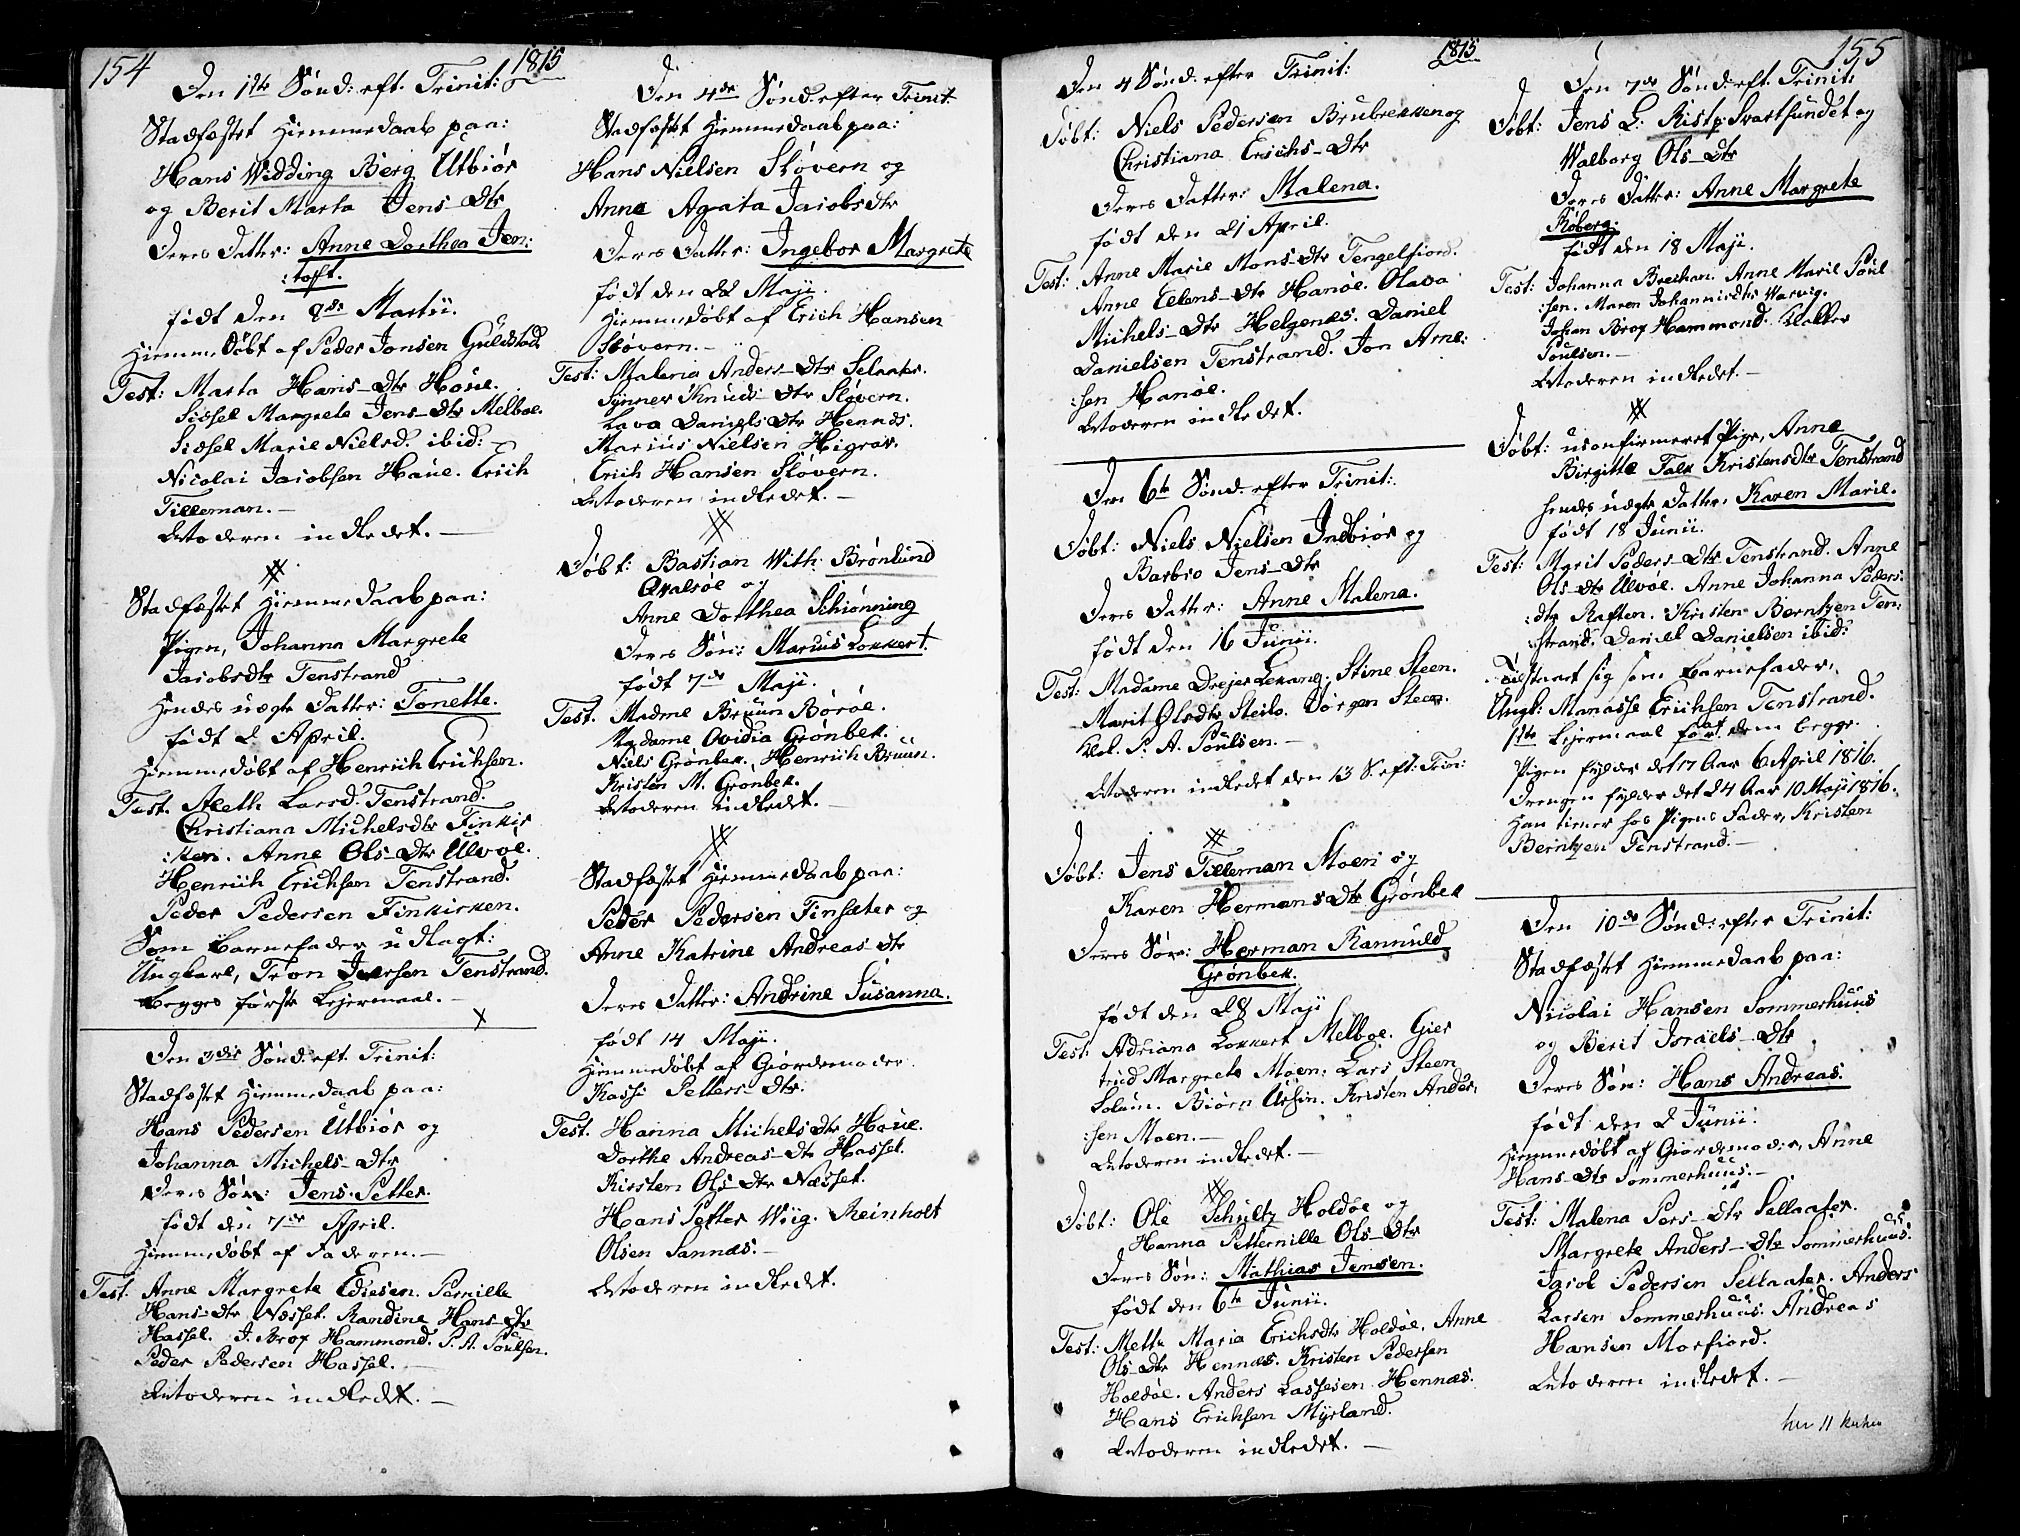 154
1815
Den 1ste Sønd: eft. Trinit:
Stadfæstet Hiemmedaab paa:
Hans Widding Berg Utbiør
og Berit Marta Jens-Dtr
Deres Datter: Anne Dorthea Jen:
:toft.
født den 9de Martii.
Hiemmedøbt af Peder Jonsen Guldstad
Test: Marta Hans-Dtr Haue.
Sidsel Margrete Jens-Dtr Melboe.
Sidsel Marie Nielsd. ibid:
Nicolai Jacobsen Haue. Erich
Tilleman.-
Moderen indledet.-
Stadfæstet Hiemmedaab paa:
Pigen, Johanna Margrete
Jacobsdtr Tenstrand
Hendes uægte Datter: Tonette.
født 2 April.
Hiemmedøbt af Henrich Erichsen.
Test. Aleth Larsd. Tenstrand.
Christiana Michelsdtr Finkir
:ken. Anne Ols-Dtr Ulvøe.
Henrich Erichsen Tenstrand.
Peder Pedersen Finkirken.
Som Barnefader udlagt:
Ungkarl, Tron Iversen Tenstrand.
Begges første Lejermaal.-
Den 3die Sønd: eft. Trinit:
Stadfæstet Hiemmedaab paa:
Hans Pedersen Utbiør og
Johanna Michels-Dtr
Deres Søn: Jens Petter.
født den 7de April.
Hiemmedøbt af Faderen.-
Test. Anne Margrete Ediesen. Pernille
Hans-Dtr Næsset. Randine Hans-Dtr
Hassel. J. Brox Hammond. P. A. Poulsen.
Peder Pedersen Hassel.-
Moderen indledet.-
Den 4de Sønd: efter Trinit.
Stadfæstet Hiemmedaab paa:
Hans Nielsen Sløvern og
Anne Agata Jacobsdtr
Deres Datter: Ingebor Margrete
født den 22 Maji.
Hiemmedøbt af Erich Hansen
Sløvern.-
Test: Malena Anders-Dtr Selaater.
Synner Knuds-Dtr Sløvern.
Lava Daniels Dtr Hennæs.
Marius Nielsen Higrav.
Erich Hansen Sløvern.
Moderen indledet.-
Døbt: Bastian With: Brønlund
Qvalsøe og
Anne Dorthea Schiønning
Deres Søn: Marius Lokkert.
født 7de Maji.
Test. Madme Bruun Børøe.
Madame Ovidia Grønbek.
Niels Grønbek. Henrich Bruun.
Kristen M. Grønbek.
Moderen indledet.-
Stadfæstet Hiemmedaab paa:
Peder Pedersen Finsæter og
Anne Katrine Andreas-Dtr
Deres Datter: Andrine Susanna.
født 14 Maji.
Hiemmedøbt af Giordemoder
Kassi Petters-Dtr.
Test. Hanna Michels Dtr Haue.
Dorthe Andreas-Dtr Hassel.
Kirsten Ols-Dtr Næsset.
Hans Petter Wiig. Reinholt
Olsen Sannæs.-
Moderen indledet.
1815
155
Den 4 Sønd: efter Trinit:
Døbt: Niels Pedersen Brubrekken og
Christiana Erichs-Dtr
Deres Datter: Malena.
født den 21 April.
Test: Anne Marie Mons-Dtr Tengelfiord.
Anne Ellens-Dtr Hanøe. Olava
Michels-Dtr Helgenæs. Daniel
Danielsen Tenstrand. Jon Arne:
:sen Hanøe.
Moderen indledet.
Den 6te Sønd: efter Trinit:
Døbt: Niels Nielsen Indbiør og
Barbro Jens-Dtr
Deres Datter: Anne Malena.
født den 16 Junii.
Test: Madame Drejer Lekang. Stine Steen.
Marit Olsdtr Steilo. Jørgen Steen.
Kl. P. A. Poulsen.-
Moderen indledet den 13 S. eft: Trin:
Døbt: Jens Tilleman Moen og
Karen Hermans Dtr Grønbek
Deres Søn: Herman Rannuld
Grønbek.
født den 28 Maji
Test: Adriana Lokkert Melboe. Gier
trud Margrete Moen. Lars Steen
Lolum. Biørn Ursin. Kristen Ander:
:sen Moen.-
Moderen indledet.-
Døbt: Ole Schultz Holdøe og
Hanna Petternille Ols-Dtr
Deres Søn: Mathias Jensen.
født den 6te Junii.
Test: Mette Maria Erichsdtr Holdøe, Anne
Ols-Dtr Hennæs. Kristen Pedersen
Holdøe. Anders Lassesen Hennæs.
Hans Erichsen Myrland.
Moderen indledet.-
Den 7de Sønd: eft. Trinit:
Døbt: Jens L: Rist p: Svartsundet og
Walborg Ols-Dtr
Deres Datter: Anne Margrete
Roberg.
født den 18 Maji.
Test: Johanna Breihan. Anne Marie Poul
:sen. Maren Johannisdtr Warvig.
Johan Brox Hammond. Klokker
Poulsen.-
Moderen indledet.-
Døbt: uconfirmeret Pige, Anne
Birgitte Falk Kristensdtr Tenstrand
hendes uægte Datter, Karen Marie.
født 18 Junii.
Test: Marit Peders-Dtr Tenstrand. Anne
Ols-Dtr Ulvøe. Anne Johanna Peders:
:dtr Raften. Kristen Berntzen Ten:
:strand. Daniel Danielsen ibid:
Tilstaaet sig som Barnefader,
Ungk: Manasse Erichsen Tenstrand.
1ste Lejermaal for dem begge.
Pigen fylder det 17 Aar 6 April 1816.
Drengen fylder det 24 Aar 10 Maji 1816.
Han tiener hos Pigens Fader, Kristen
Berntzen Tenstrand.-
Den 10de Sønd: efter Trinit:
Stadfæstet Hiemmedaab paa:
Nicolai Hansen Sommerhuus
og Berit Israels-Dtr
Deres Søn: Hans Andreas.
født den 2 Junii.
Hiemmedøbt af Giordemoder, Anne
Hans-Dtr Sommerhuus.-
Test: Malena Pers-Dtr Sellaater.
Margrete Anders-Dtr Sommerhuus.
Jacob Pedersen Sellaater. Anders
Larsen Sommerhuus. Andreas
Hansen Morfiord.
Moderen indledet.-
her 11